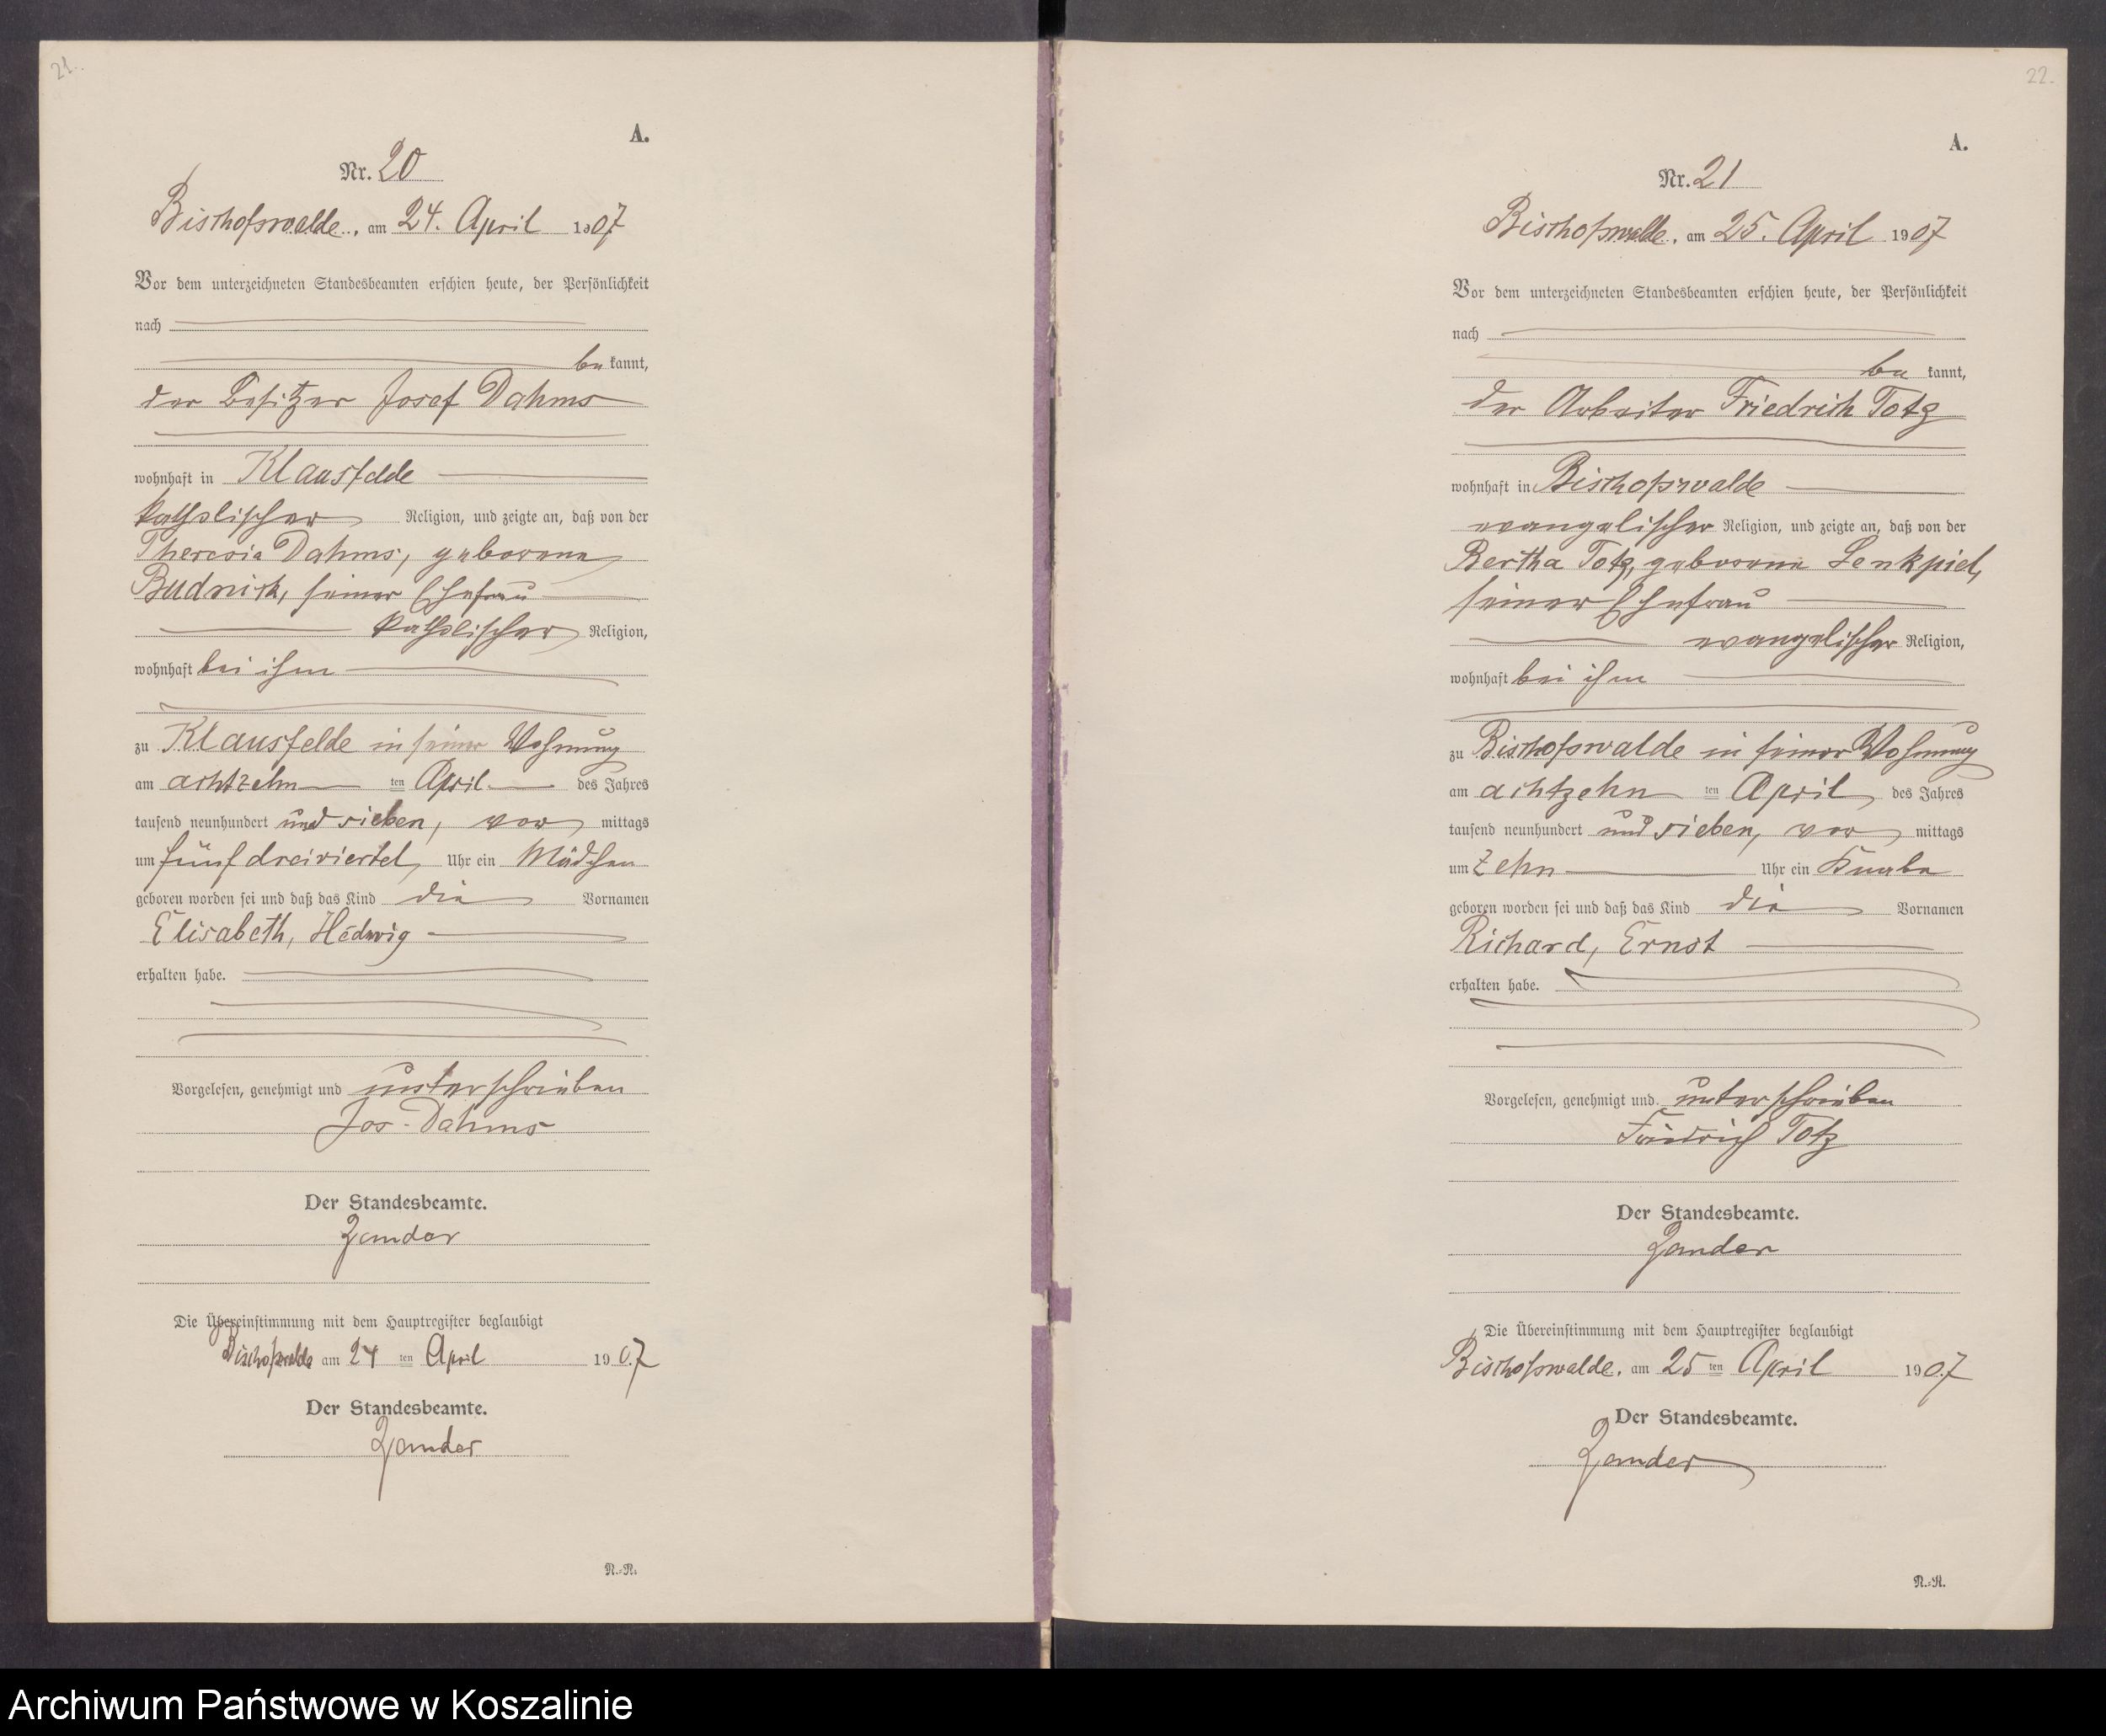 21.
A.
Nr. 20
Bischofswalde, am 24. April 1907
Vor dem unterzeichneten Standesbeamten erschien heute, der Persönlichkeit
nach
be kannt,
der Besitzer Josef Dahms
wohnhaft in Klausfelde
katholischer Religion, und zeigte an, daß von der
Theresia Dahms, geborene
Budnick, seiner Ehefrau
katholischer Religion,
wohnhaft bei ihm
zu Klausfelde in seiner Wohnung
am achtzehn ten April des Jahres
tausend neunhundert und sieben, vor mittags
um fünf dreiviertel Uhr ein Mädchen
geboren worden sei und daß das Kind die Vornamen
Elisabeth, Hedwig
erhalten habe.
Vorgelesen, genehmigt und unterschrieben
Jos. Dahms
Der Standesbeamte.
Zander
Die Übereinstimmung mit dem Hauptregister beglaubigt
Bischofswalde am 24 ten April 1907
Der Standesbeamte.
Zander
N.-R.
22.
A.
Nr. 21
Bischofswalde, am 25. April 1907
Vor dem unterzeichneten Standesbeamten erschien heute, der Persönlichkeit
nach
be kannt,
der Arbeiter Friedrich Totz
wohnhaft in Bischofswalde
evangelischer Religion, und zeigte an, daß von der
Bertha Totz, geborene Lenkpiel,
seiner Ehefrau
evangelischer Religion,
wohnhaft bei ihm
zu Bischofswalde in seiner Wohnung
am achtzehn ten April des Jahres
tausend neunhundert und sieben, vor mittags
um zehn Uhr ein Knabe
geboren worden sei und daß das Kind die Vornamen
Richard, Ernst
erhalten habe.
Vorgelesen, genehmigt und unterschrieben
Friedrich Totz
Der Standesbeamte.
Zander
Die Übereinstimmung mit dem Hauptregister beglaubigt
Bischofswalde, am 25 ten April 1907
Der Standesbeamte.
Zander
N.-R.
Archiwum Państwowe w Koszalinie